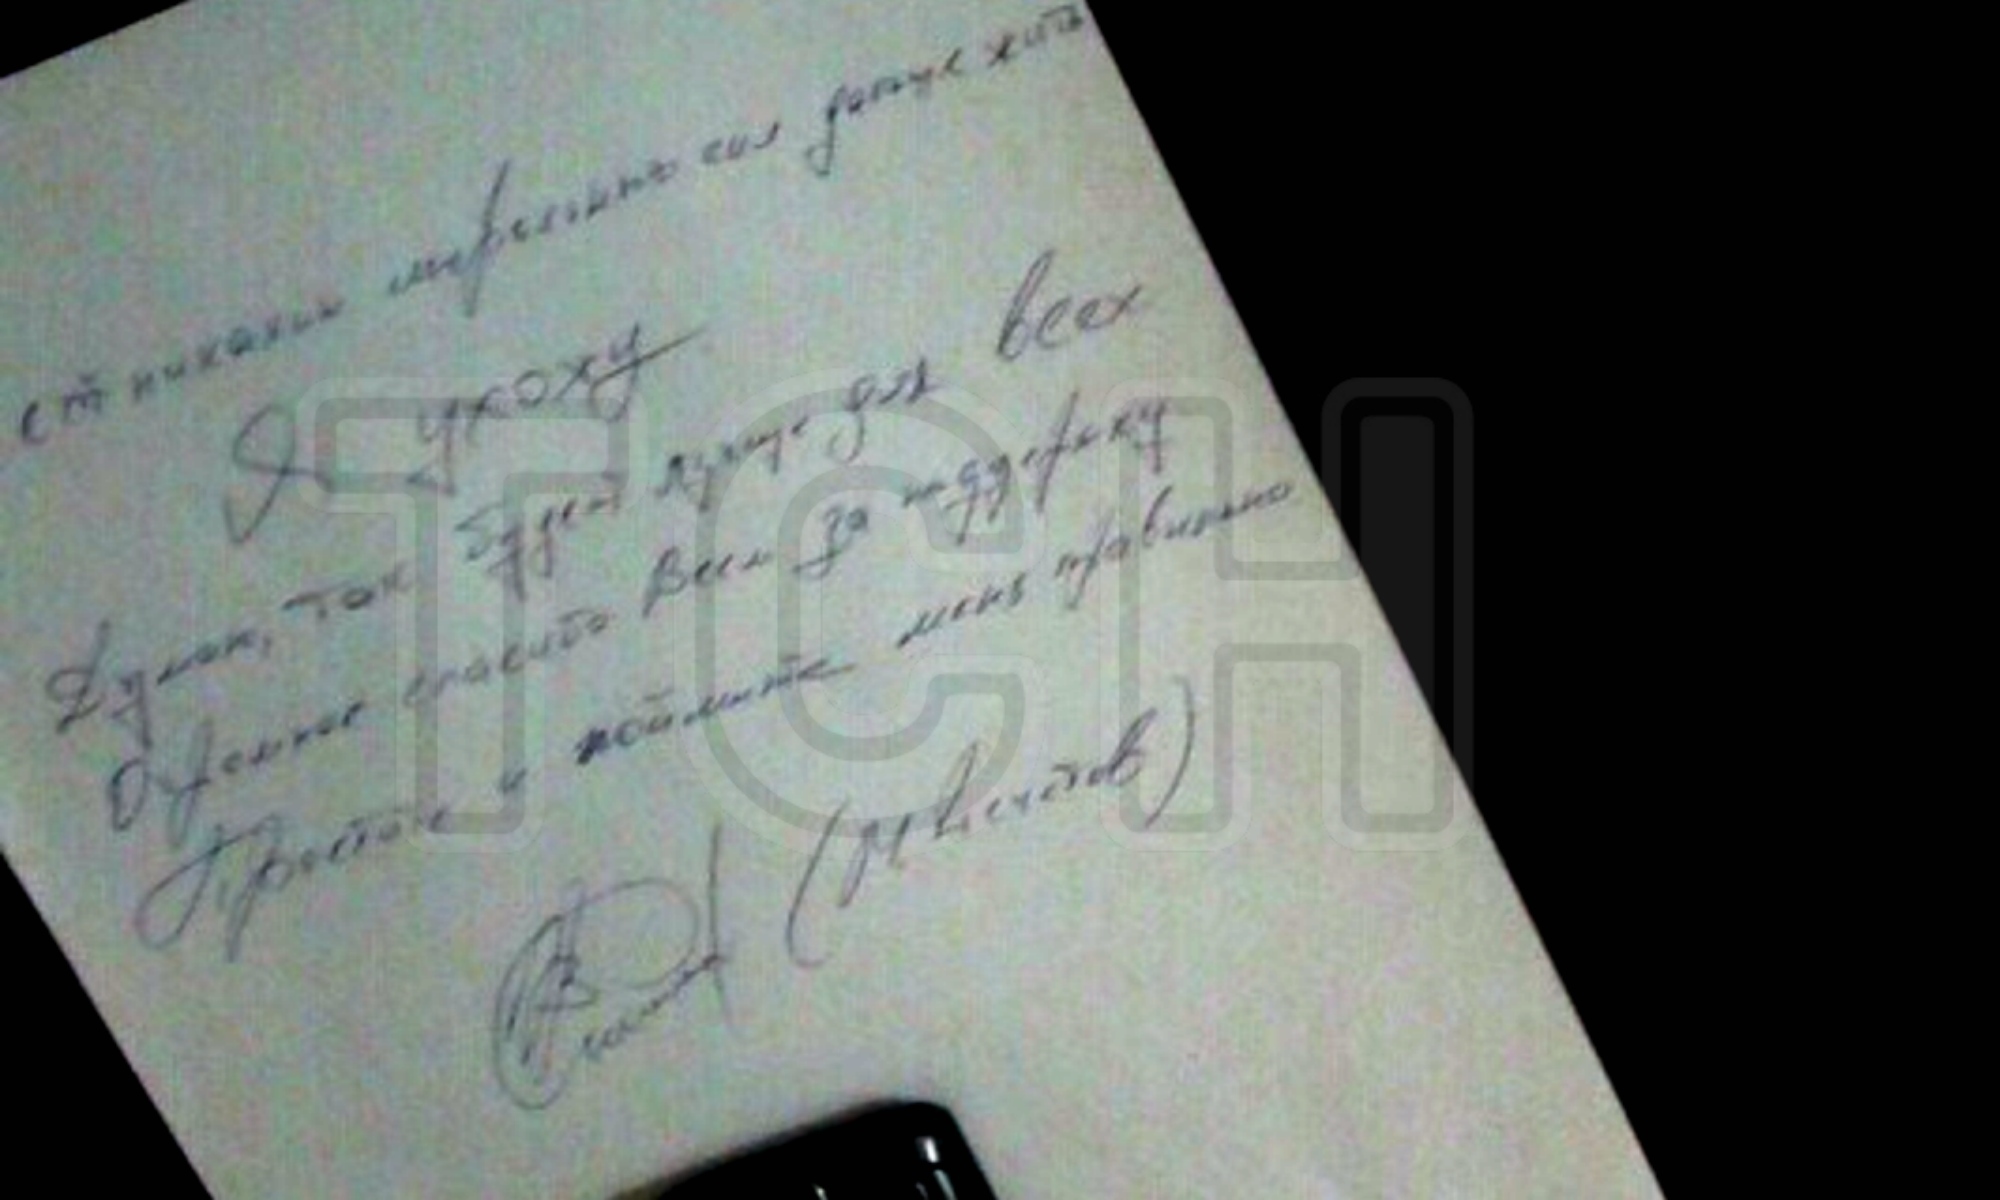 ет никаких моральных сил дальше жить
Я ухожу
Думаю, так будет лучше для всех
Огромное спасибо всем за поддержку
Простите и поймите меня правильно
(Чечетов)
ТСН